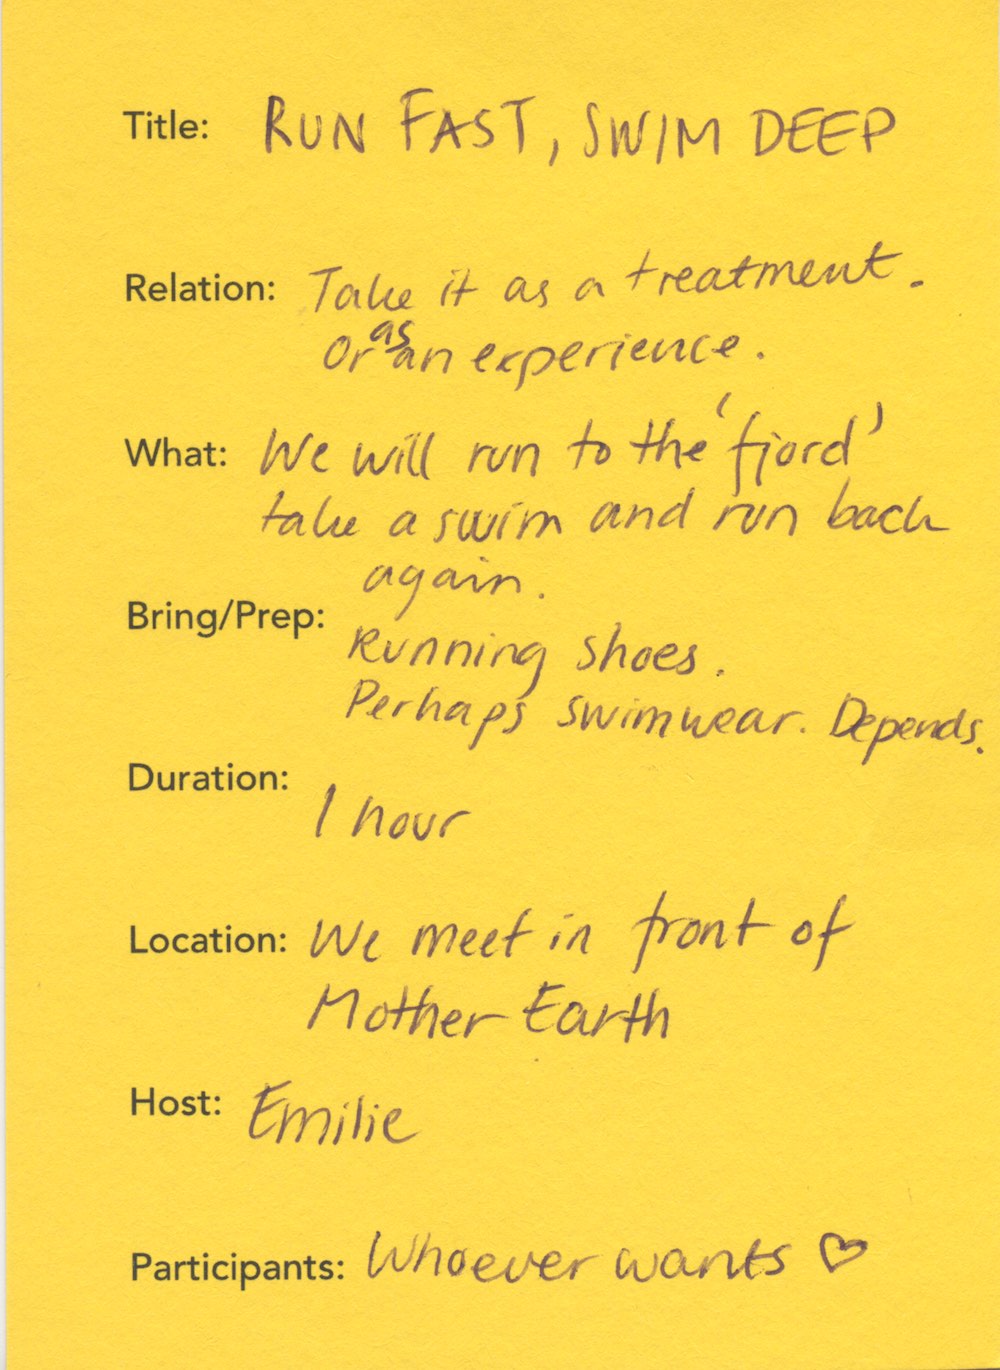 Title: RUN FAST, SWIM DEEP
Relation: Take it as a treatment.
Or as an experience.
What: We will run to the 'fjord'
take a swim and run back
again.
Bring/Prep: Running shoes.
Perhaps swimwear. Depends.
Duration: 1 hour
Location: We meet in front of
Mother Earth
Host: Emilie
Participants: Whoever wants ♡